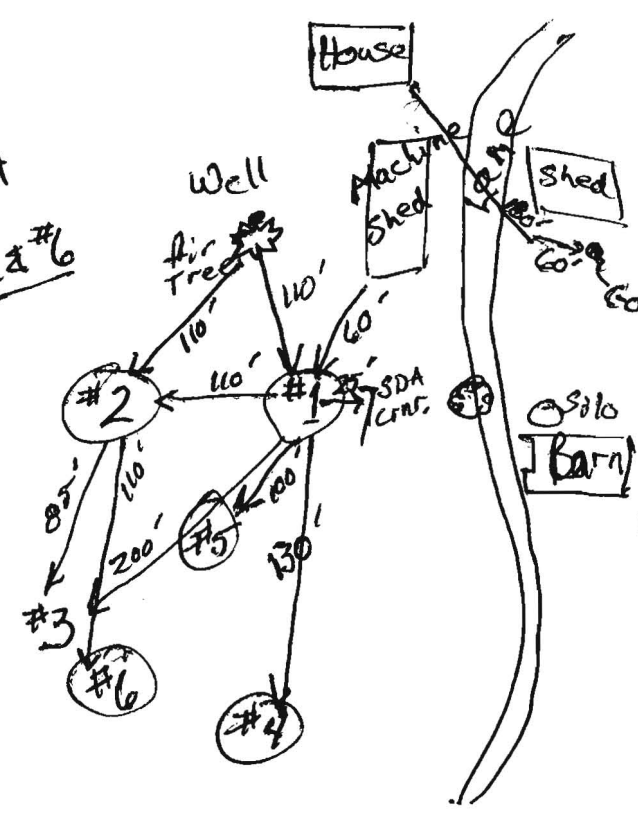 House
Machine
Shed
Shed
Well
Air
Tree
& #6
110'
110'
60'
60'
#2
110'
#1
25'
SDA
Crnr.
Silo
Barn
85'
110'
200'
100'
#5
130'
#3
#6
#4